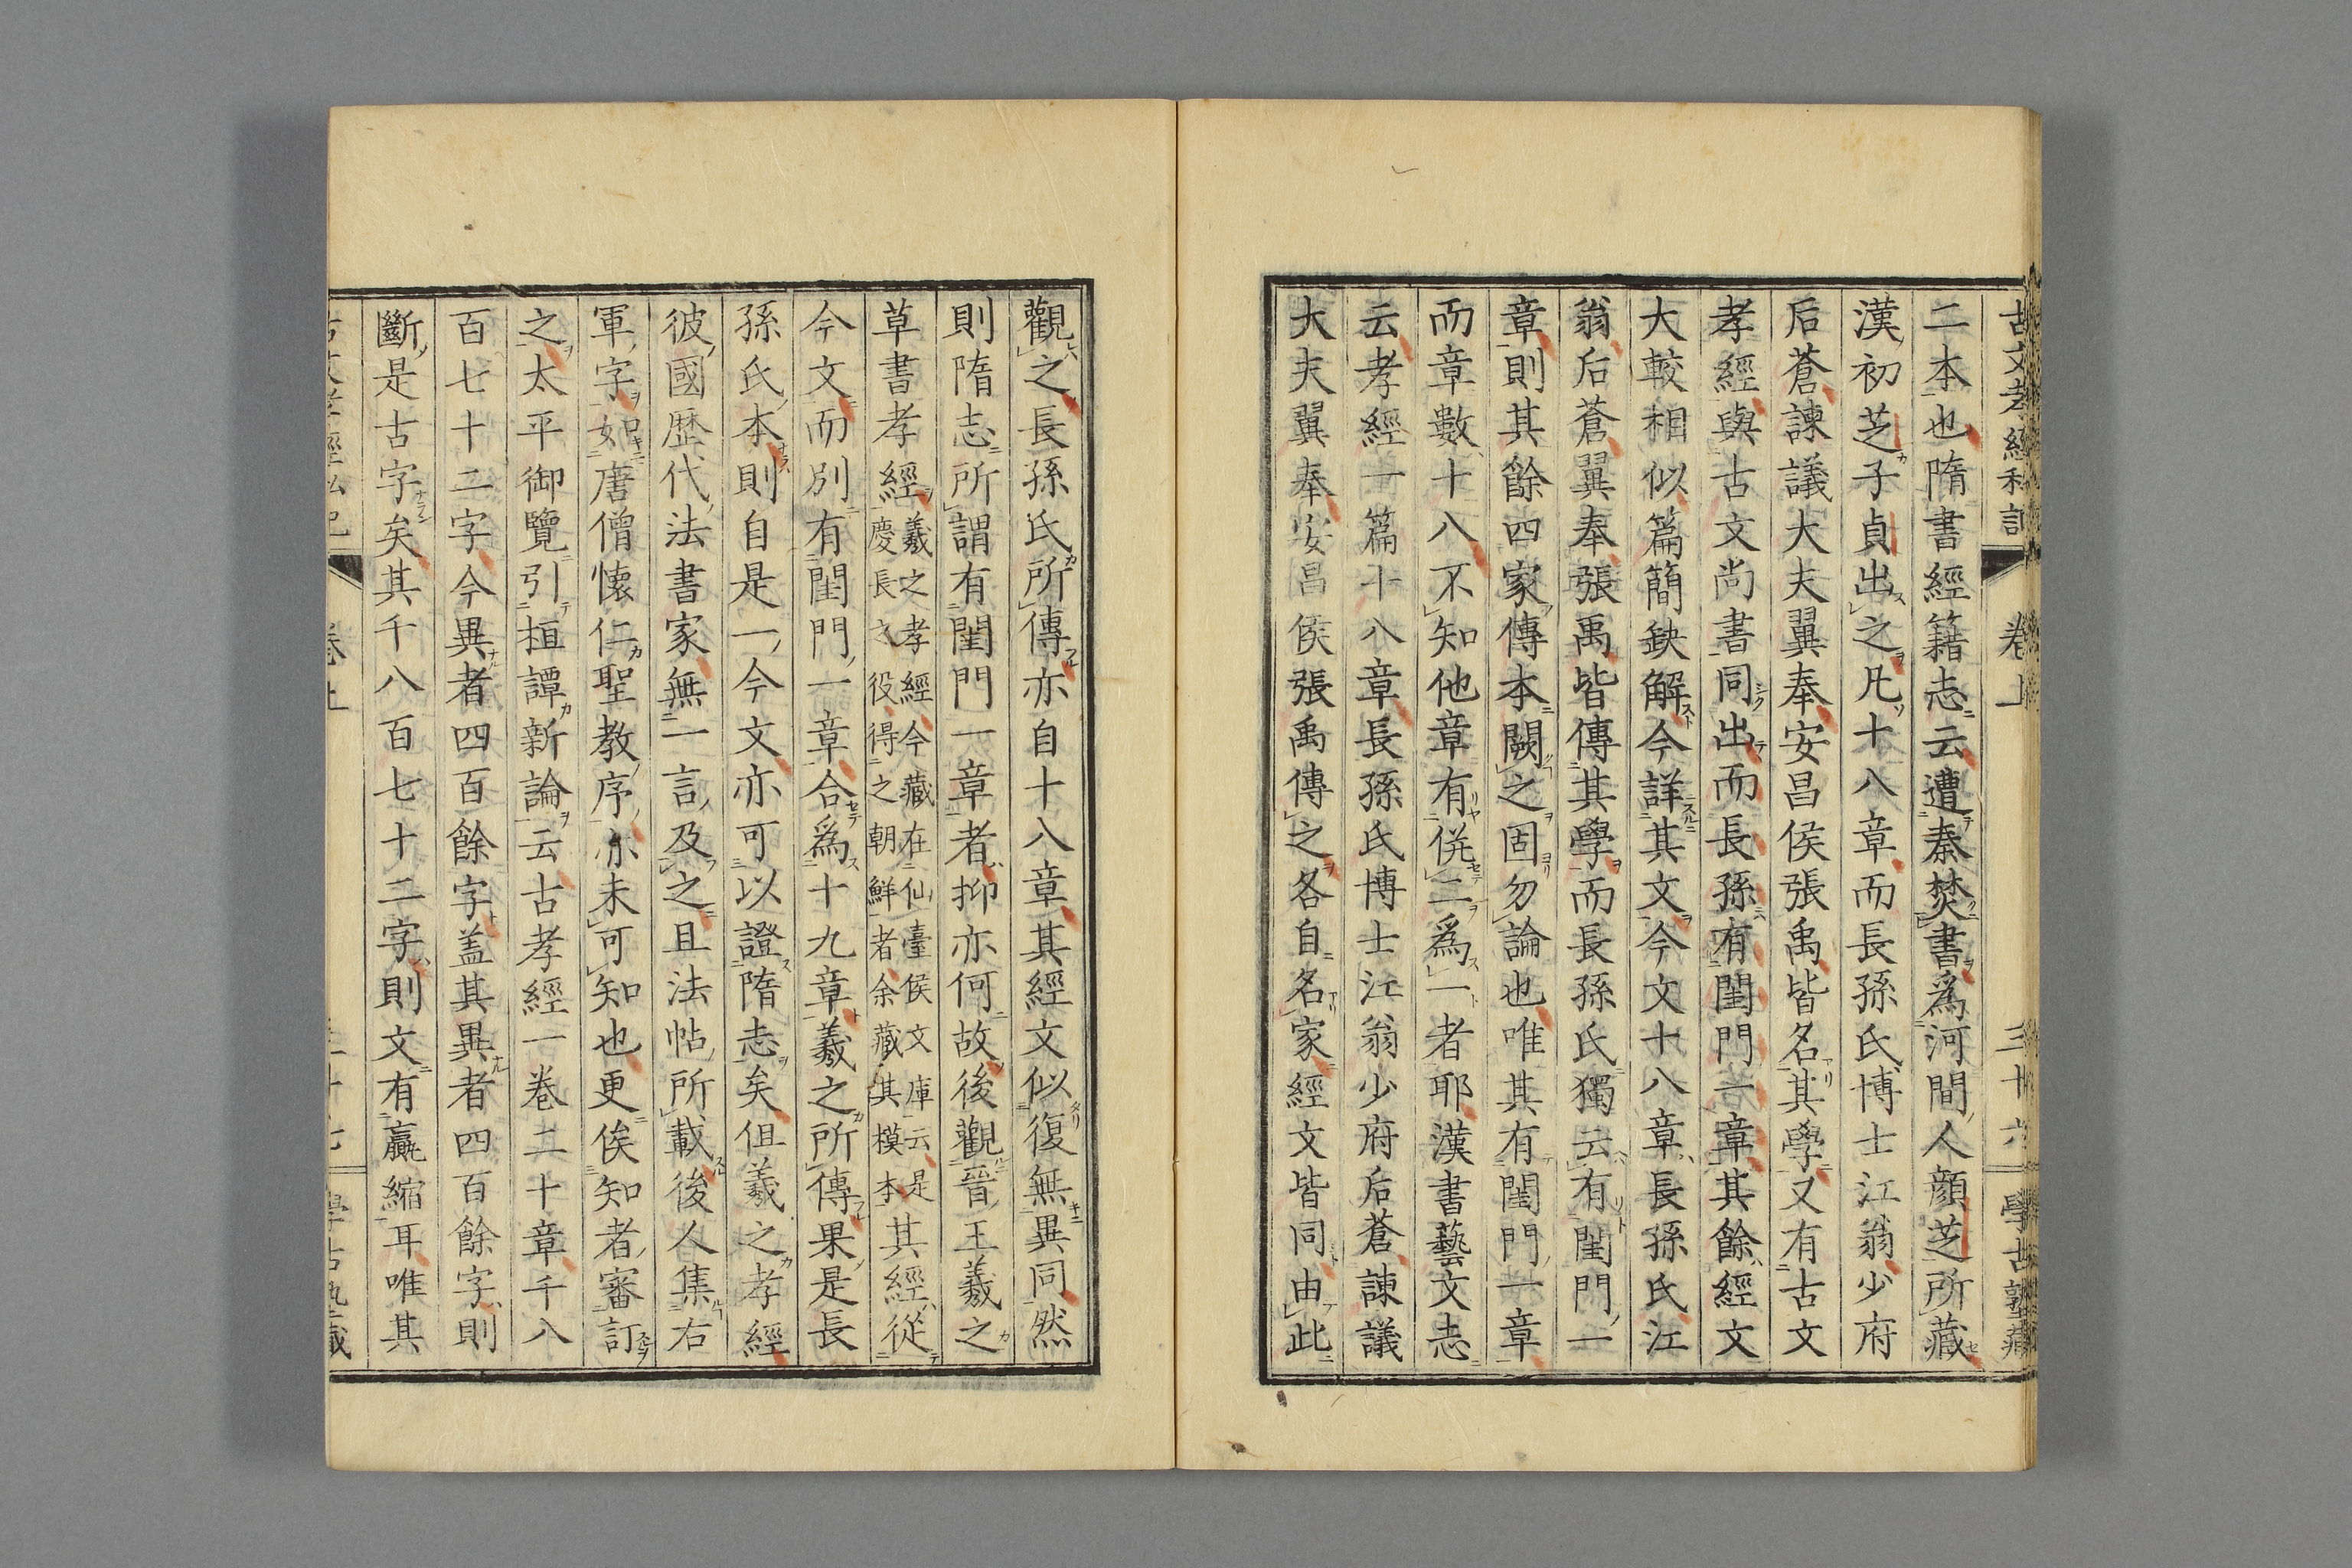 古文孝經私記 卷上 三十六 學古塾藏
二本也隋書經籍志云遭秦焚書爲河間人顔芝所藏
漢初芝子貞出之凡十八章而長孫氏博士江翁少府
后蒼諫議大夫翼奉安昌侯張禹皆名其學又有古文
孝經與古文尚書同出而長孫有閨門一章其餘經文
大較相似篇簡缺解今詳其文今文十八章長孫氏江
翁后蒼翼奉張禹皆傳其學而長孫氏獨云有閨門一
章則其餘四家傳本闕之固勿論也唯其有閨門一章
而章數十八不知他章有併二爲一者耶漢書藝文志
云孝經一篇十八章長孫氏博士江翁少府后蒼諫議
大夫翼奉安昌侯張禹傳之各自名家經文皆同由此
觀之長孫氏所傳亦自十八章其經文似復無異同然
則隋志所謂有閨門一章者抑亦何故後觀晉王羲之
草書孝經羲之孝經今藏在仙臺侯文庫云是慶長之役得之朝鮮者余藏其模本其經從
今文而別有閨門一章合爲十九章羲之所傳果是長
孫氏本則自是一今文亦可以證隋志矣但羲之孝經
彼國歷代法書家無一言及之且法帖所載後人集右
軍字如唐僧懷仁聖教序亦未可知也更俟知者審訂
之太平御覽引桓譚新論云古孝經一卷二十章千八
百七十二字今異者四百餘字盖其異者四百餘字則
斷是古字矣其千八百七十二字則文有贏縮耳唯其